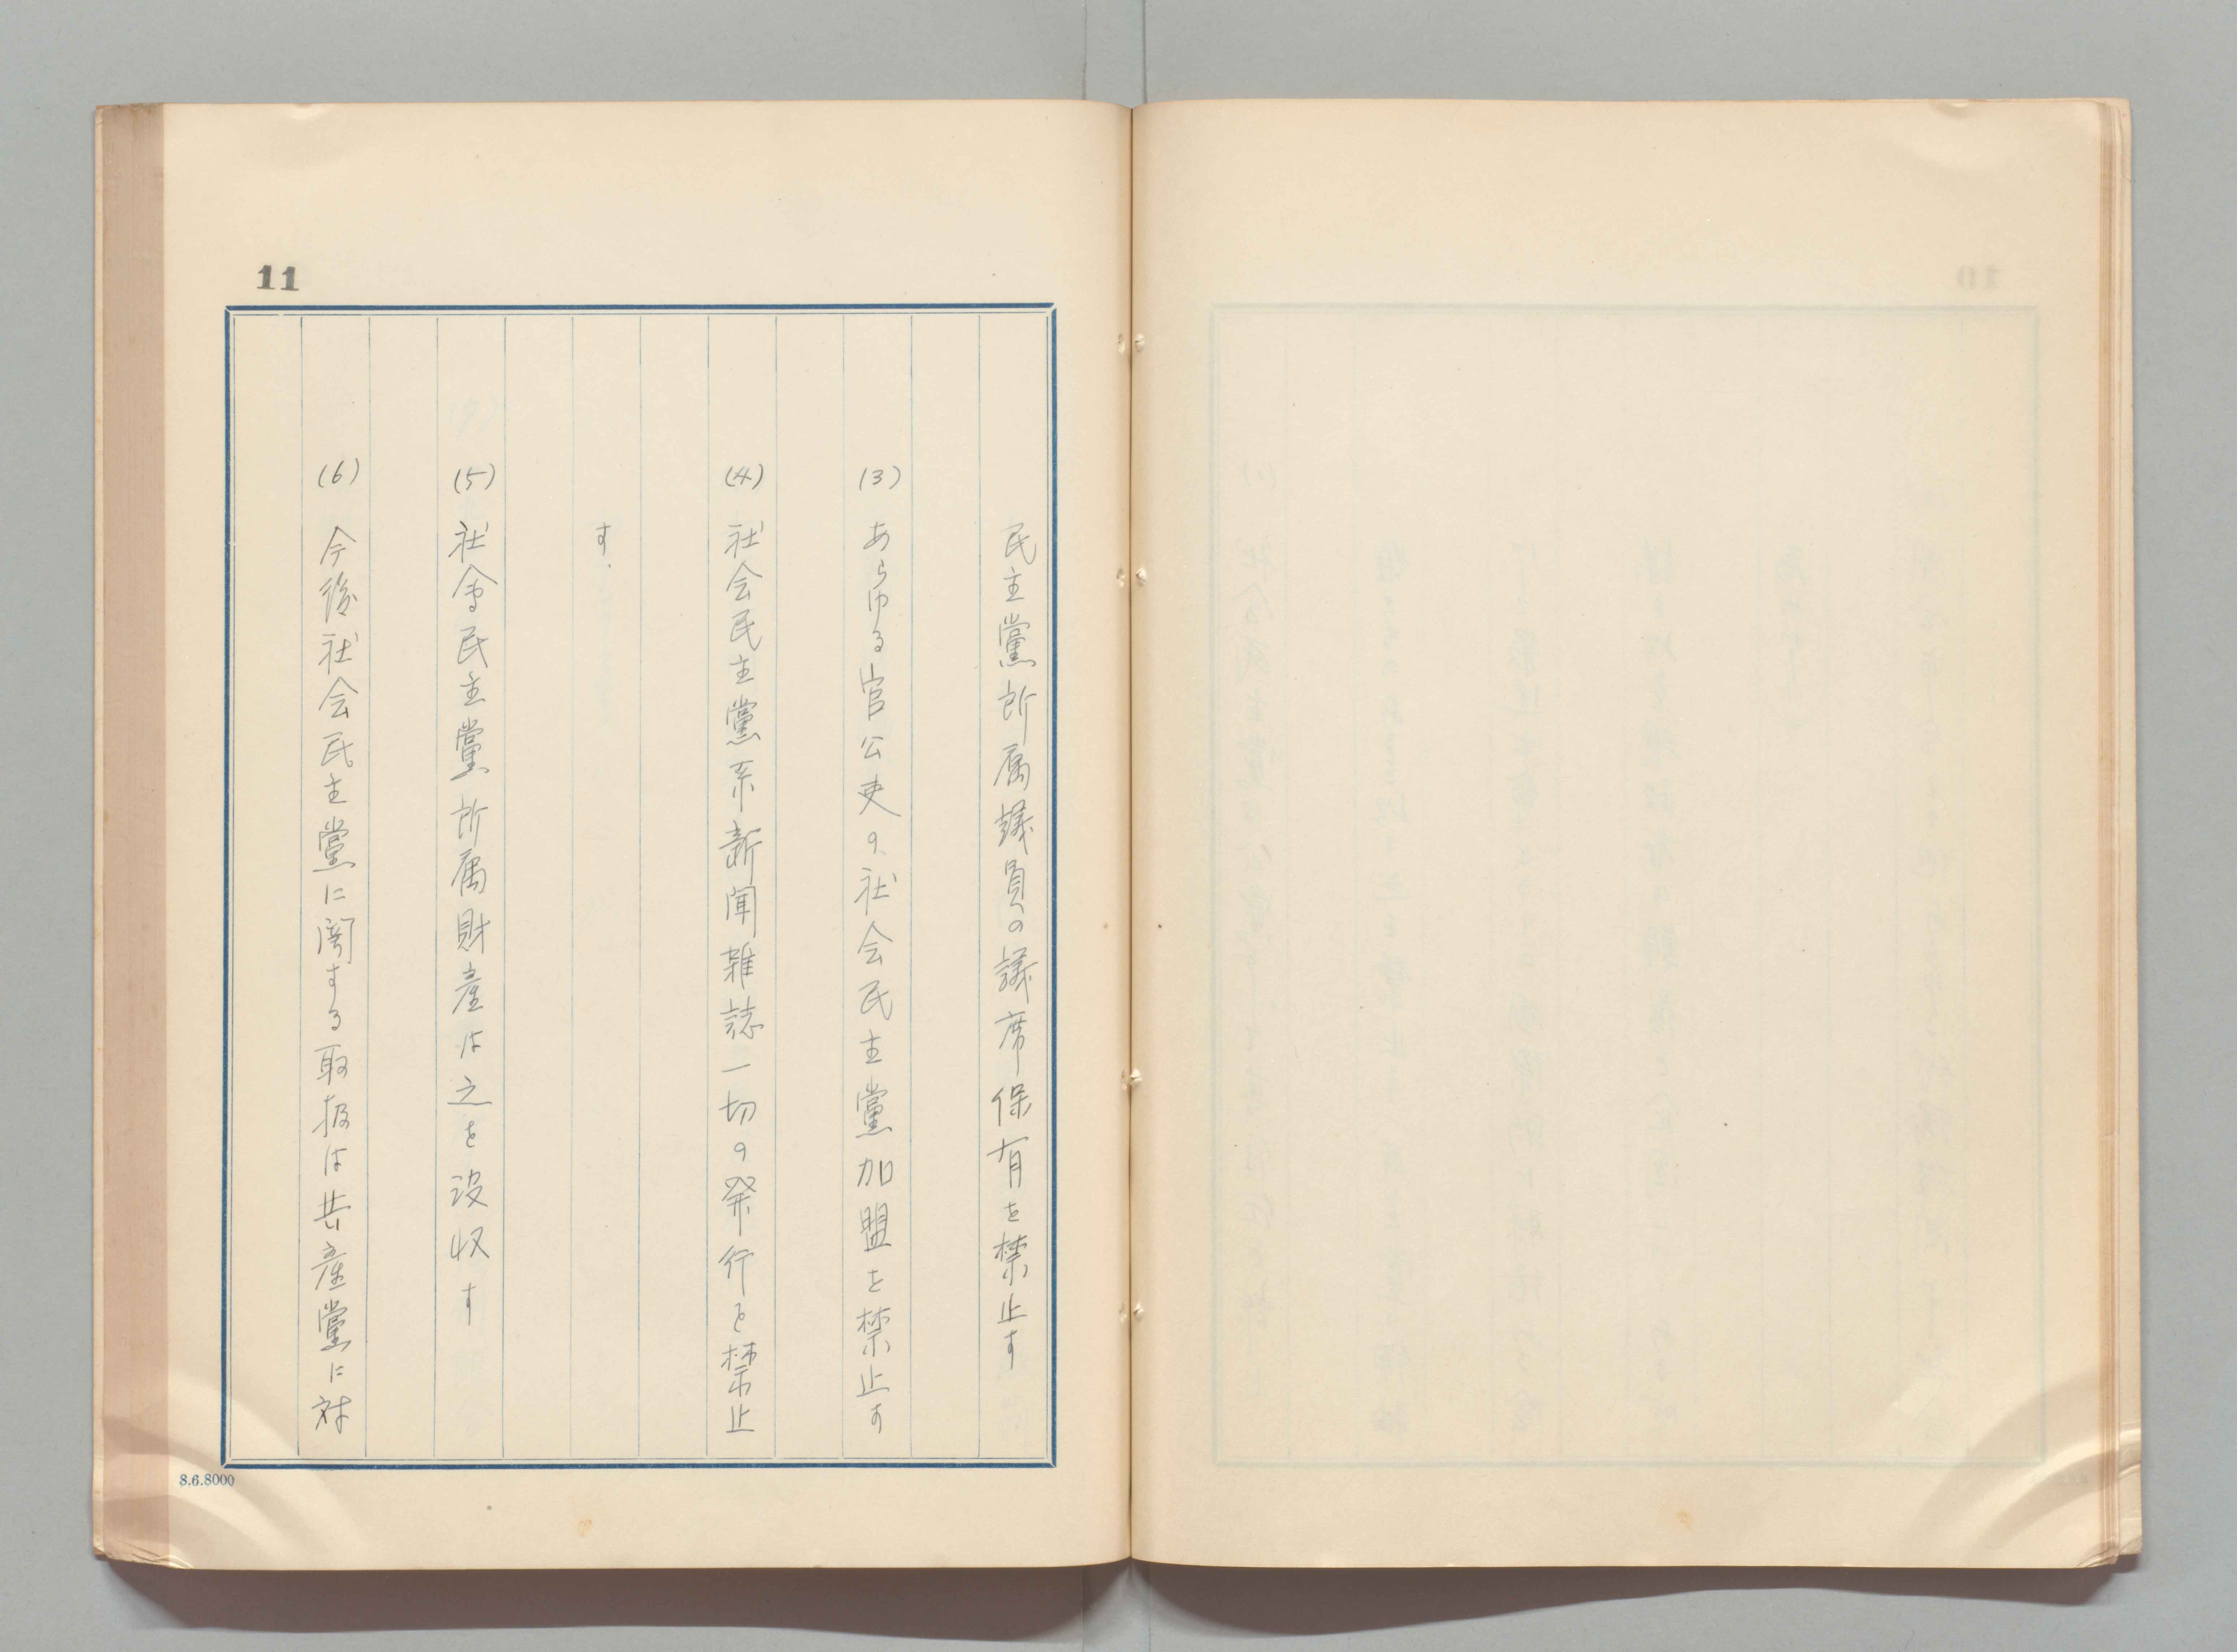 11
民主黨所属議員の議席保有を禁止す
(3) あらゆる官公吏の社会民主黨加盟を禁止す
(4) 社会民主黨系新聞雑誌一切の発行を禁止
す.
(5) 社會民主黨所属財産は之を没収す
(6) 今後社会民主黨に関する取扱は共産黨に対
8.6.8000